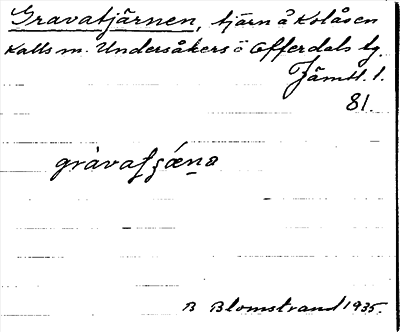 Gravatjärnen, tjärn å Kolåsen
Kalls m. Undersåkers o Offerdals tg.
Jämtl. l.
81.
B Blomstrand 1935.